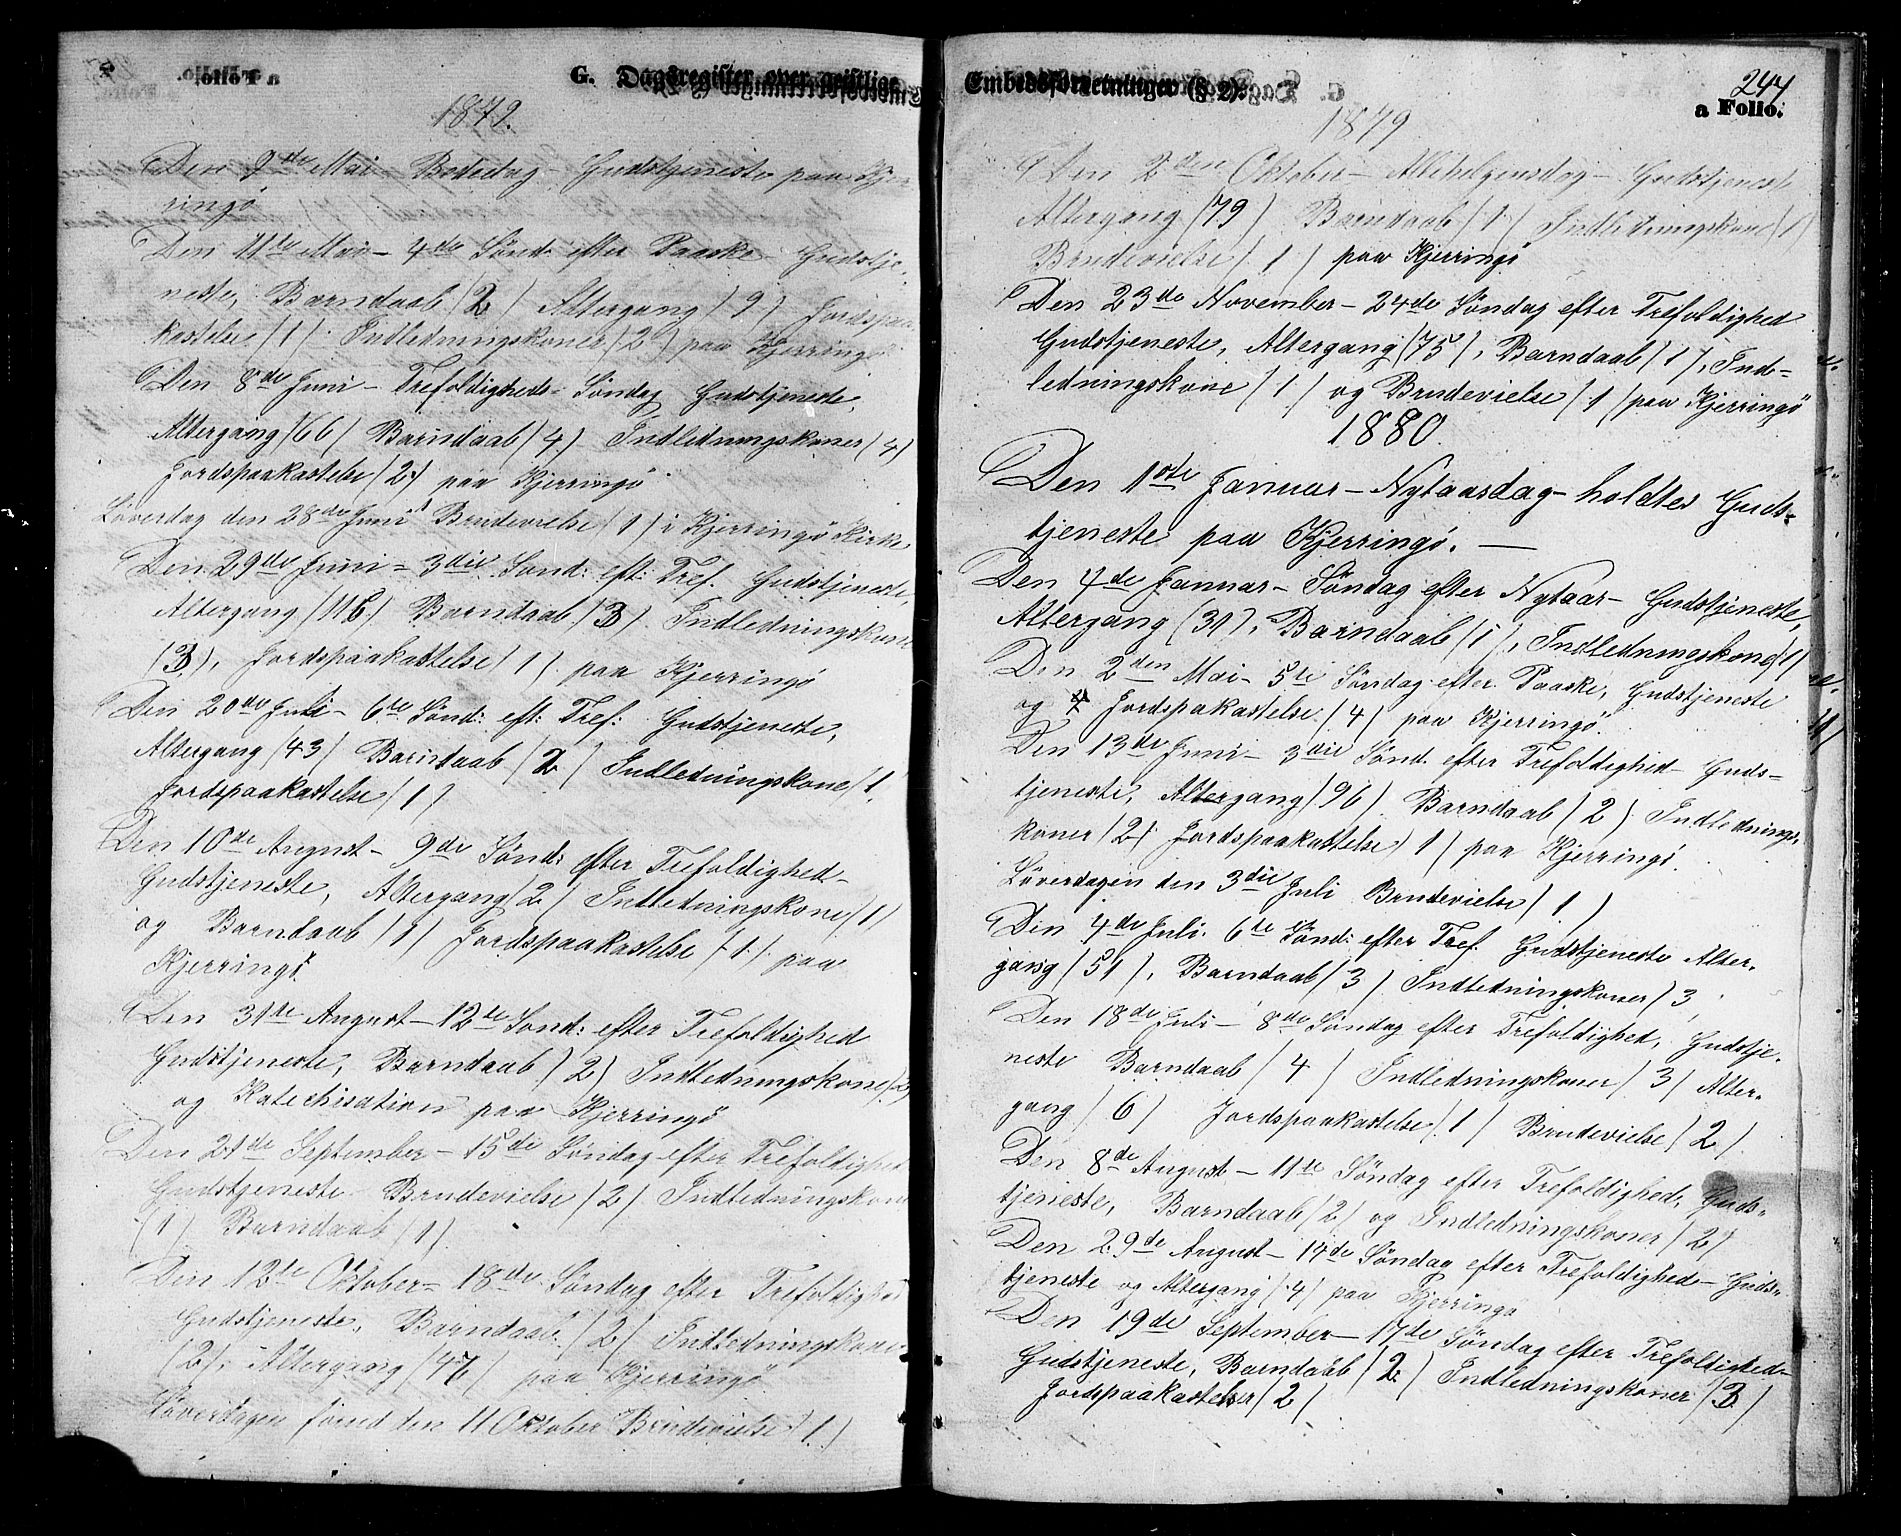 G. Dagsregister over geistlige
1879.
Den 9de Mai Bededag Gudstjeneste paa Kjer
ringö
Den 11te Mai - 4de Sönd: efter Paaske - Gudstje
neste, Barndaab (2) Altergang (9) Jordspaa
kastelse (1) Indledningskoner (2) paa Kjerringö
Den 8de Juni - Trefoldigheds-Söndag Gudstjeneste,
Altergang (66) Barndaab (4) Indledningskoner (4)
Jordspaakastelse (2) paa Kjerringö
Löverdag den 28de Juni Brudevielse (1) i Kjerringö Kirke
Den 29de Juni - 3die Sönd: eft: Tref. Gudstjeneste,
Altergang (116) Barndaab (3) Indledningskone
(3), Jordspaakastelse (1) paa Kjerringö
Den 20de Juli - 6te Sönd: eft: Tref: Gudstjeneste,
Altergang (43) Barndaab (2) Indledningskone (1)
Jordspaakastelse (1)
Den 10de August - 9de Sönd: efter Trefoldighed -
Gudstjeneste, Altergang (2) Indledningskone (1)
og Barndaab (1) Jordspaakastelse (1) paa
Kjerringö
Den 31te August - 12te Sönd: efter Trefoldighed
Gudstjeneste, Barndaab (2) Indledningskone (2)
og Katechisation paa Kjerringö
Den 21de September - 15de Söndag efter Trefoldighed
Gudstjeneste Brudevielse (2) Indledningskone
(1) Barndaab (1)
Den 12te Oktober - 18de Söndag efter Trefoldighed
Gudstjeneste, Barndaab (2) Indledningskoner
(2), Altergang (47) paa Kjerringö
Löverdagen forud den 11 Oktober Brudevielse (1)
Embedsforretninger (§ 2).
244
a Folio.
1879
Den 2den Oktober - Allehelgensdag - Gudstjeneste
Altergang (79) Barndaab (1) Indledningskone (1)
Brudevielse (1) paa Kjerringö
Den 23de November - 24de Söndag efter Trefoldighed
Gudstjeneste, Altergang (75), Barndaab (1), Ind=
ledningskone (1) og Brudevielse (1) paa Kjerringö
1880.
Den 1ste Januar - Nytaarsdag - holdtes Guds=
tjeneste paa Kjerringö. -
Den 4de Januar - Söndag efter Nytaar - Gudstjeneste,
Altergang (31), Barndaab (1), Indledningskone (1)
Den 2den Mai - 5te Söndag efter Paaske, Gudstjeneste
og Jordspakastelse (4) paa Kjerringö.
Den 13de Juni - 3die Sönd. efter Trefoldighed - Guds=
tjeneste, Altergang (96) Barndaab (2) Indlednings=
koner (2) Jordspaakastelse (1) paa Kjerringö.
Löverdagen den 3die Juli Brudevielse (1)
Den 4de Juli. 6te Sönd: efter Tref. Gudstjeneste Alter=
gang (51), Barndaab (3) Indledningskoner (3)
Den 18de Juli - 8de Söndag efter Trefoldighed, Gudstje=
neste Barndaab (4) Indledningskoner (3) Alter=
gang (6) Jordspaakastelse (1) Brudevielse (2)
Den 8de August - 11te Söndag efter Trefoldighed, Guds=
tjeneste, Barndaab (2) og Indledningskoner (2)
Den 29de August - 14de Söndag efter Trefoldighed - Guds=
tjeneste og Altergang (4) paa Kjerringö
Den 19de September - 17de Söndag efter Trefoldighed -
Gudstjeneste, Barndaab (2) Indledningskoner (3)
Jordspaakastelser (2)